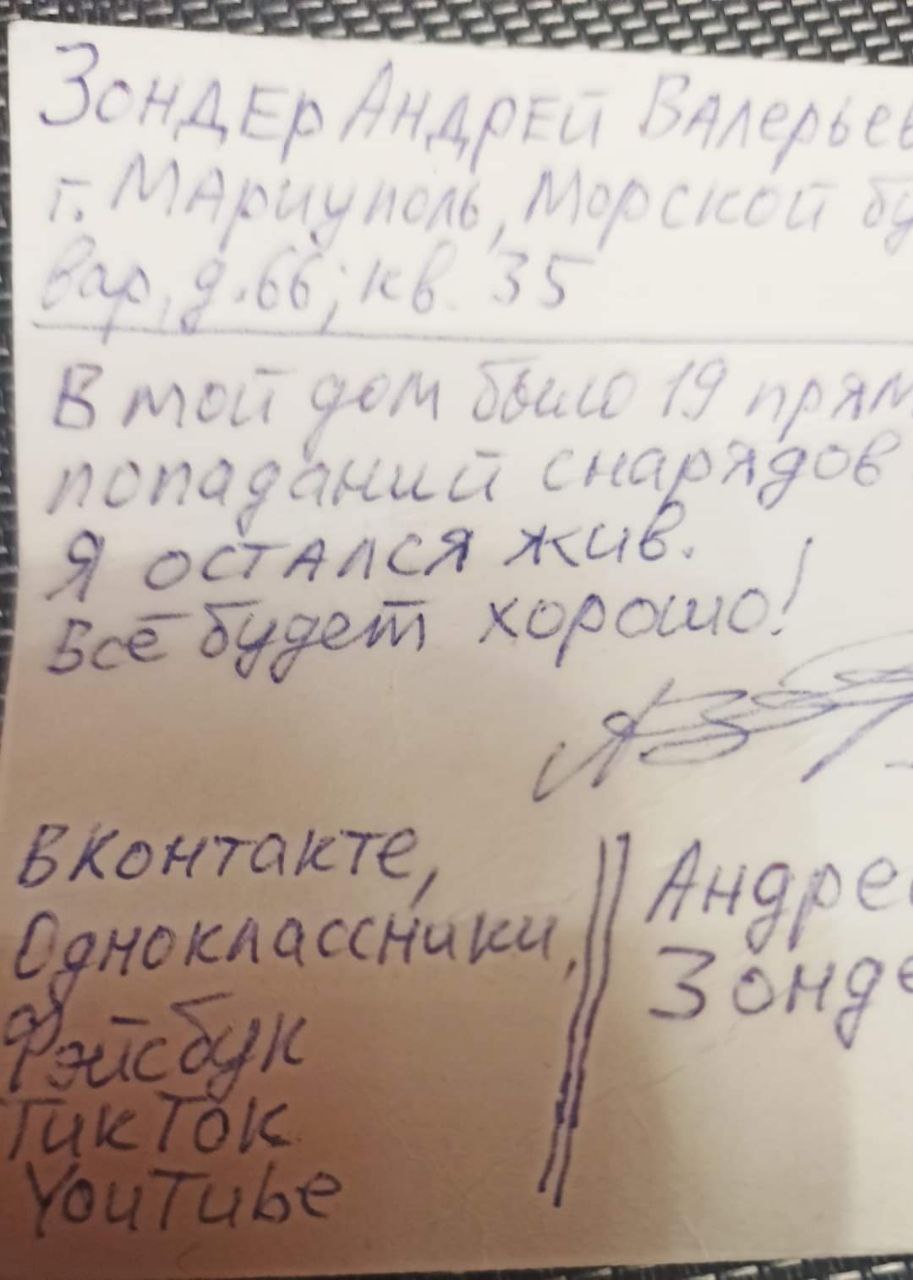 Зондер Андрей Валерьев
г. Мариуполь, Морской бу
вар, д.66; кв. 35
В мой дом было 19 прям
попаданий снарядов
Я остался жив.
Всё будет хорошо!
ВКонтакте,
Одноклассники,
Фэйсбук
ТикТок
YouTube
Андре
Зонде